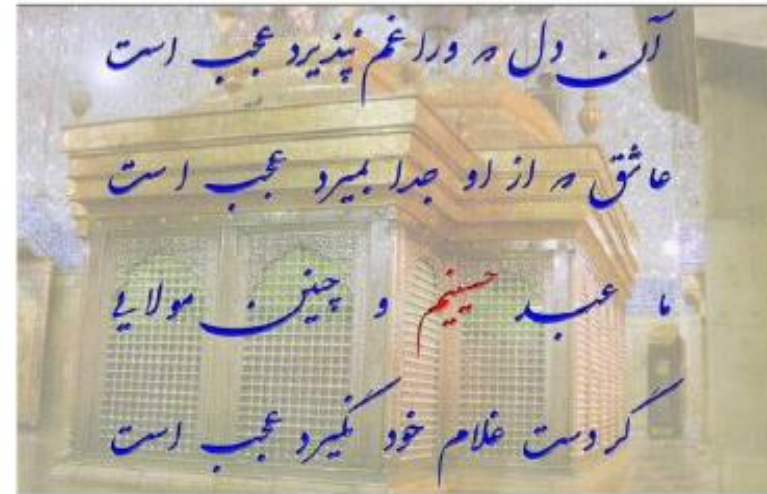 آن دل که ورا غم نپذیرد عجب است
عاشق که از او جدا بمیرد عجب است
ما عبد حسینیم و چنین مولایی
گر دست غلام خود نگیرد عجب است